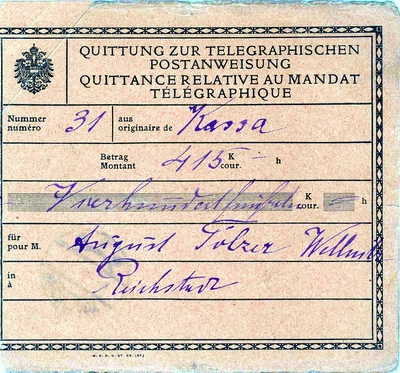 QUITTUNG ZUR TELEGRAPHISCHEN
POSTANWEISUNG
QUITTANCE RELATIVE AU MANDAT
TÉLÉGRAPHIQUE
Nummer
numéro 31 aus
originaire de Kassa
Betrag
Montant 415 K
cour. — h
Vierhundertfünfzehn K
cour. — h
für
pour M. August Tölzer
in
à Reichstadt